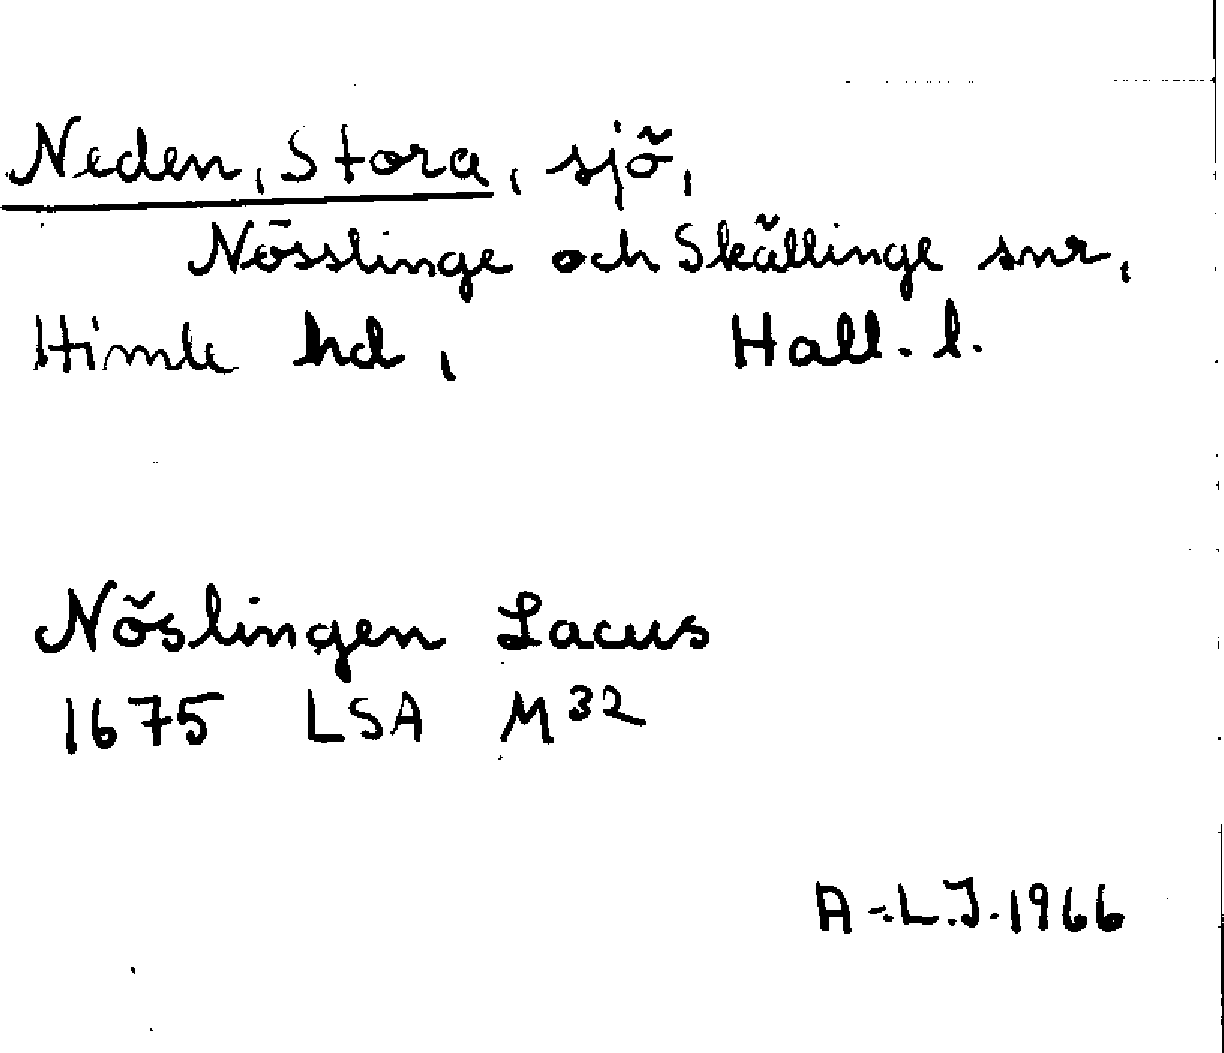 Neden, Stora, sjö,
Nösslinge och Skällinge snr,
Himle hd, Hall. l.
Nöslingen Lacus
1675 LSA M32
A-L.J. 1966